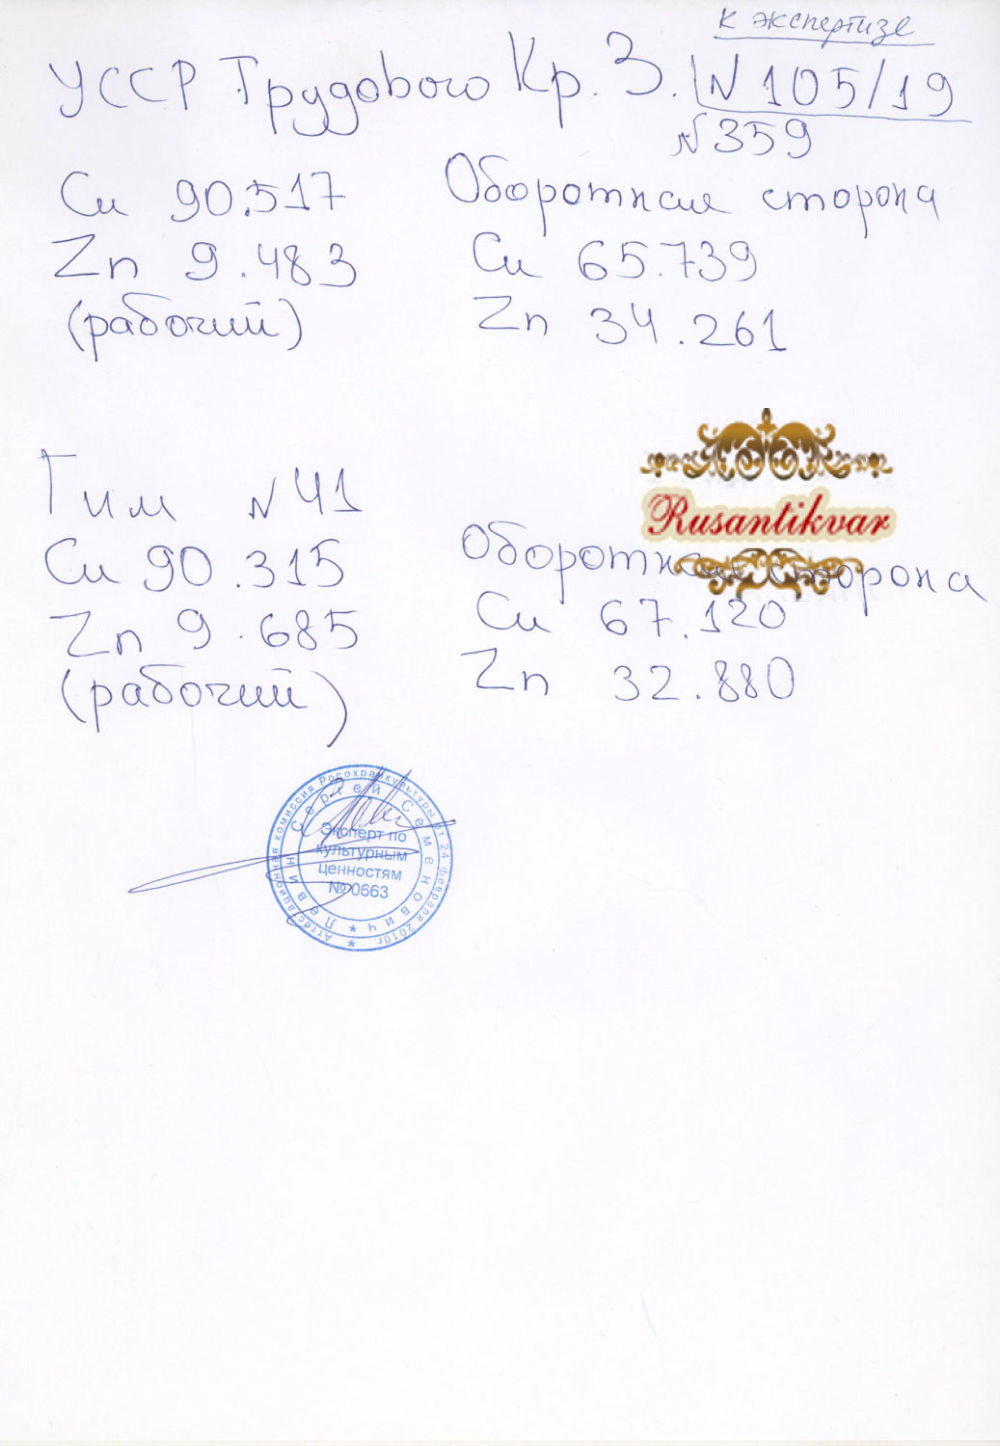 к экспертизе
УССР Трудового Кр. З. N 105/19
N 359
Cu 90.517
Zn 9.483
(рабочий)
Оборотная сторона
Cu 65.739
Zn 34.261
Rusantikvar
Гим N 41
Cu 90.315
Zn 9.685
(рабочий)
Оборотная сторона
Cu 67.120
Zn 32.880
Аттестационная комиссия Росохранкультуры от 24 февраля 2010г. *
Левин Сергей Семенович *
Эксперт по
культурным
ценностям
№ 0663